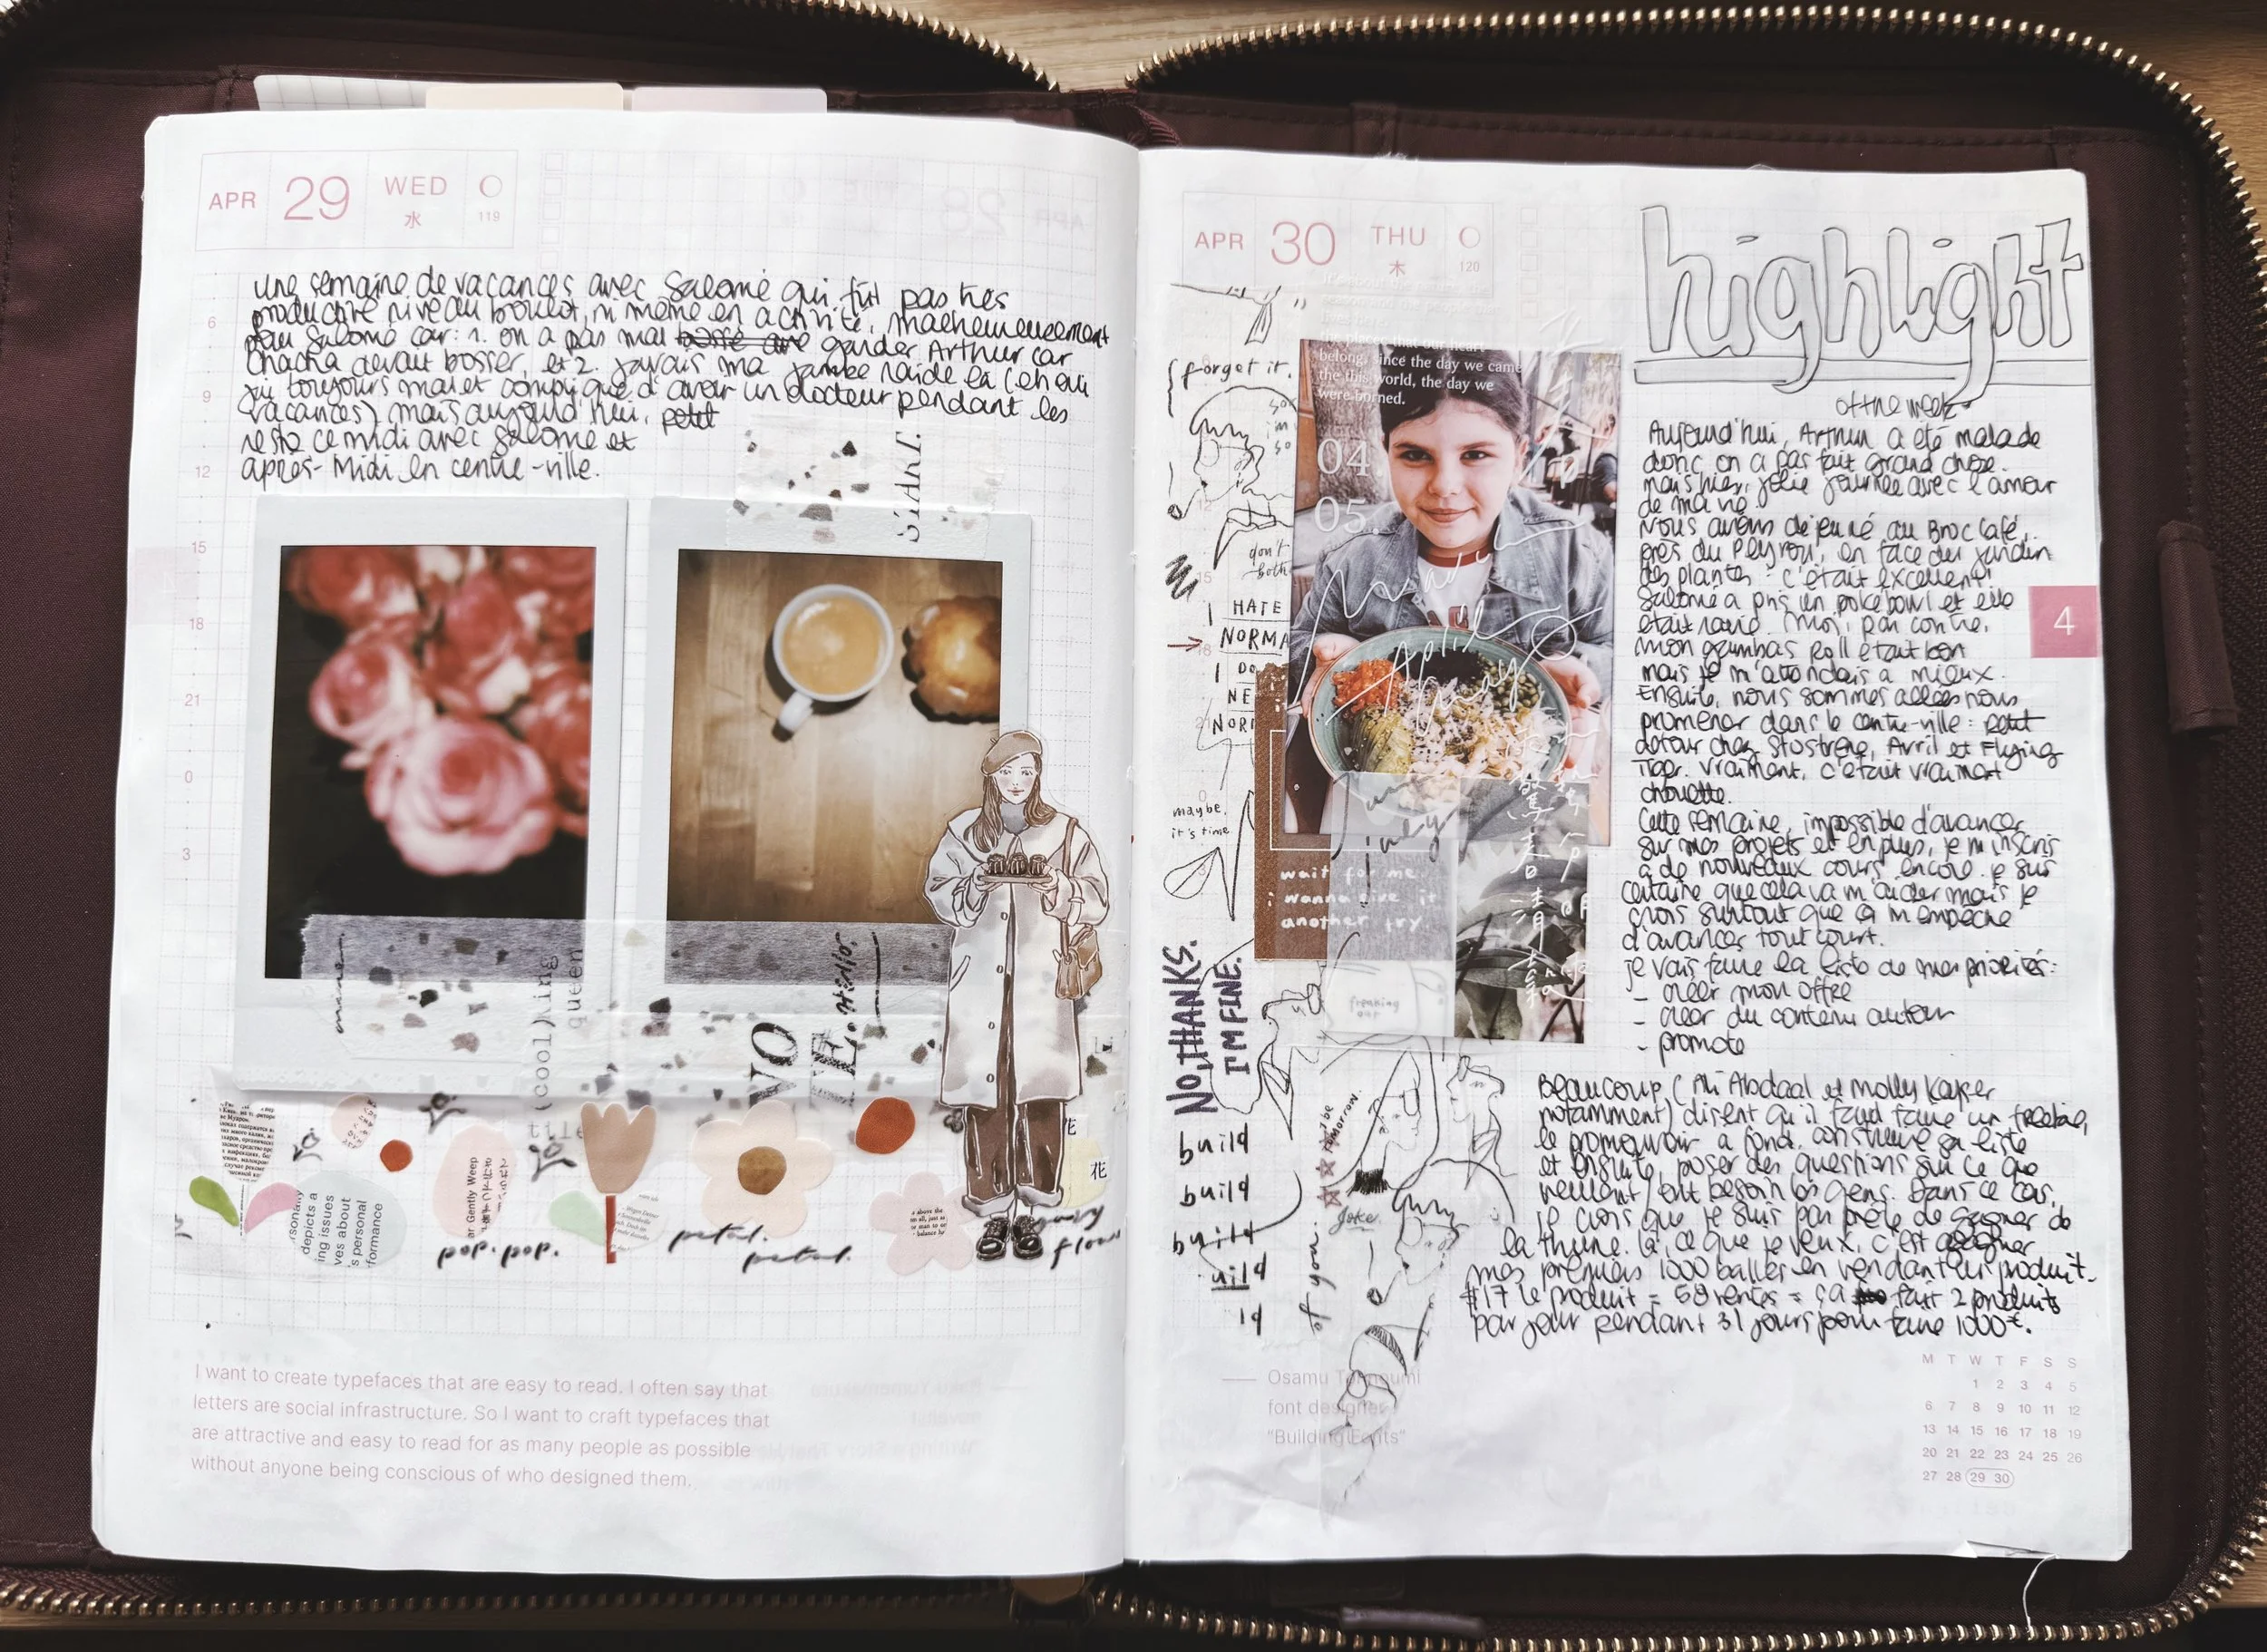 APR 29 WED
水 119
une semaine de vacances avec Salomé qui fut pas très
productive niveau boulot, ni même en activité, malheureusement
pour Salomé car: 1. on a pas mal bossé garder Arthur car
Chacha devait bosser, et 2. j'avais ma jambe raide là (eh oui
j'ai toujours mal et compliqué d'avoir un docteur pendant les
vacances) mais aujourd'hui, petit
resto ce midi avec Salomé et
après-Midi en centre-ville.
6
9
12
15
18
21
0
3
START.
(cool)
queen
NO
depicts a
ing issues
ves about
s personal
formance
ar Gently Weep
pop. pop.
petal.
petal.
花
I want to create typefaces that are easy to read. I often say that
letters are social infrastructure. So I want to craft typefaces that
are attractive and easy to read for as many people as possible
without anyone being conscious of who designed them.
APR 30 THU
木 120
highlight
of the week
forget it.
belong, since the day we came
the this world, the day we
were borned.
04
05
don't
both
I HATE
NORMA
I DO
NE
NORM
April
May
maybe,
it's time
wait for me
i wanna give it
another try
freaking
out
NO, THANKS.
I'M FINE.
build
build
build
uild
ld
tomorrow.
Joke.
of you.
Aujourd'hui, Arthur a été malade
donc on a pas fait grand chose.
mais hier, jolie journée avec l'amour
de ma vie.
Nous avons déjeuné au Broc Café,
près du Peyrou, en face du jardin
des plantes : c'était excellent!
Salomé a pris un poke bowl et elle
était ravie. Moi, par contre,
mon gambas roll était bon
mais je m'attendais à mieux.
Ensuite, nous sommes allées nous
promener dans le centre-ville : petit
détour chez Sostrene, Avril et Flying
Tiger. Vraiment, c'était vraiment
chouette.
Cette semaine, impossible d'avancer
sur mes projets et en plus, je m'inscris
à de nouveaux cours encore. je suis
certaine que cela va m'aider mais je
crois surtout que ça m'empêche
d'avancer tout court.
je vais faire la liste de mes priorités:
- créer mon offre
- créer du contenu autour
- promote
Beaucoup (Ali Abdaal et Molly Keyser
notamment) disent qu'il faut faire un freebie,
le promouvoir à fond, construire sa liste
et ensuite, poser des questions sur ce que
veulent/ont besoin les gens. Dans ce cas,
je crois que je suis pas prête de gagner de
la thune. là, ce que je veux, c'est gagner
mes premiers 1000 balles en vendant leur produit.
$17 le produit = 58 ventes = ça fait 2 produits
par jour pendant 31 jours pour faire 1000€.
4
Osamu Torinoumi
font designer
"Building Fonts"
M T W T F S S
1 2 3 4 5
6 7 8 9 10 11 12
13 14 15 16 17 18 19
20 21 22 23 24 25 26
27 28 29 30